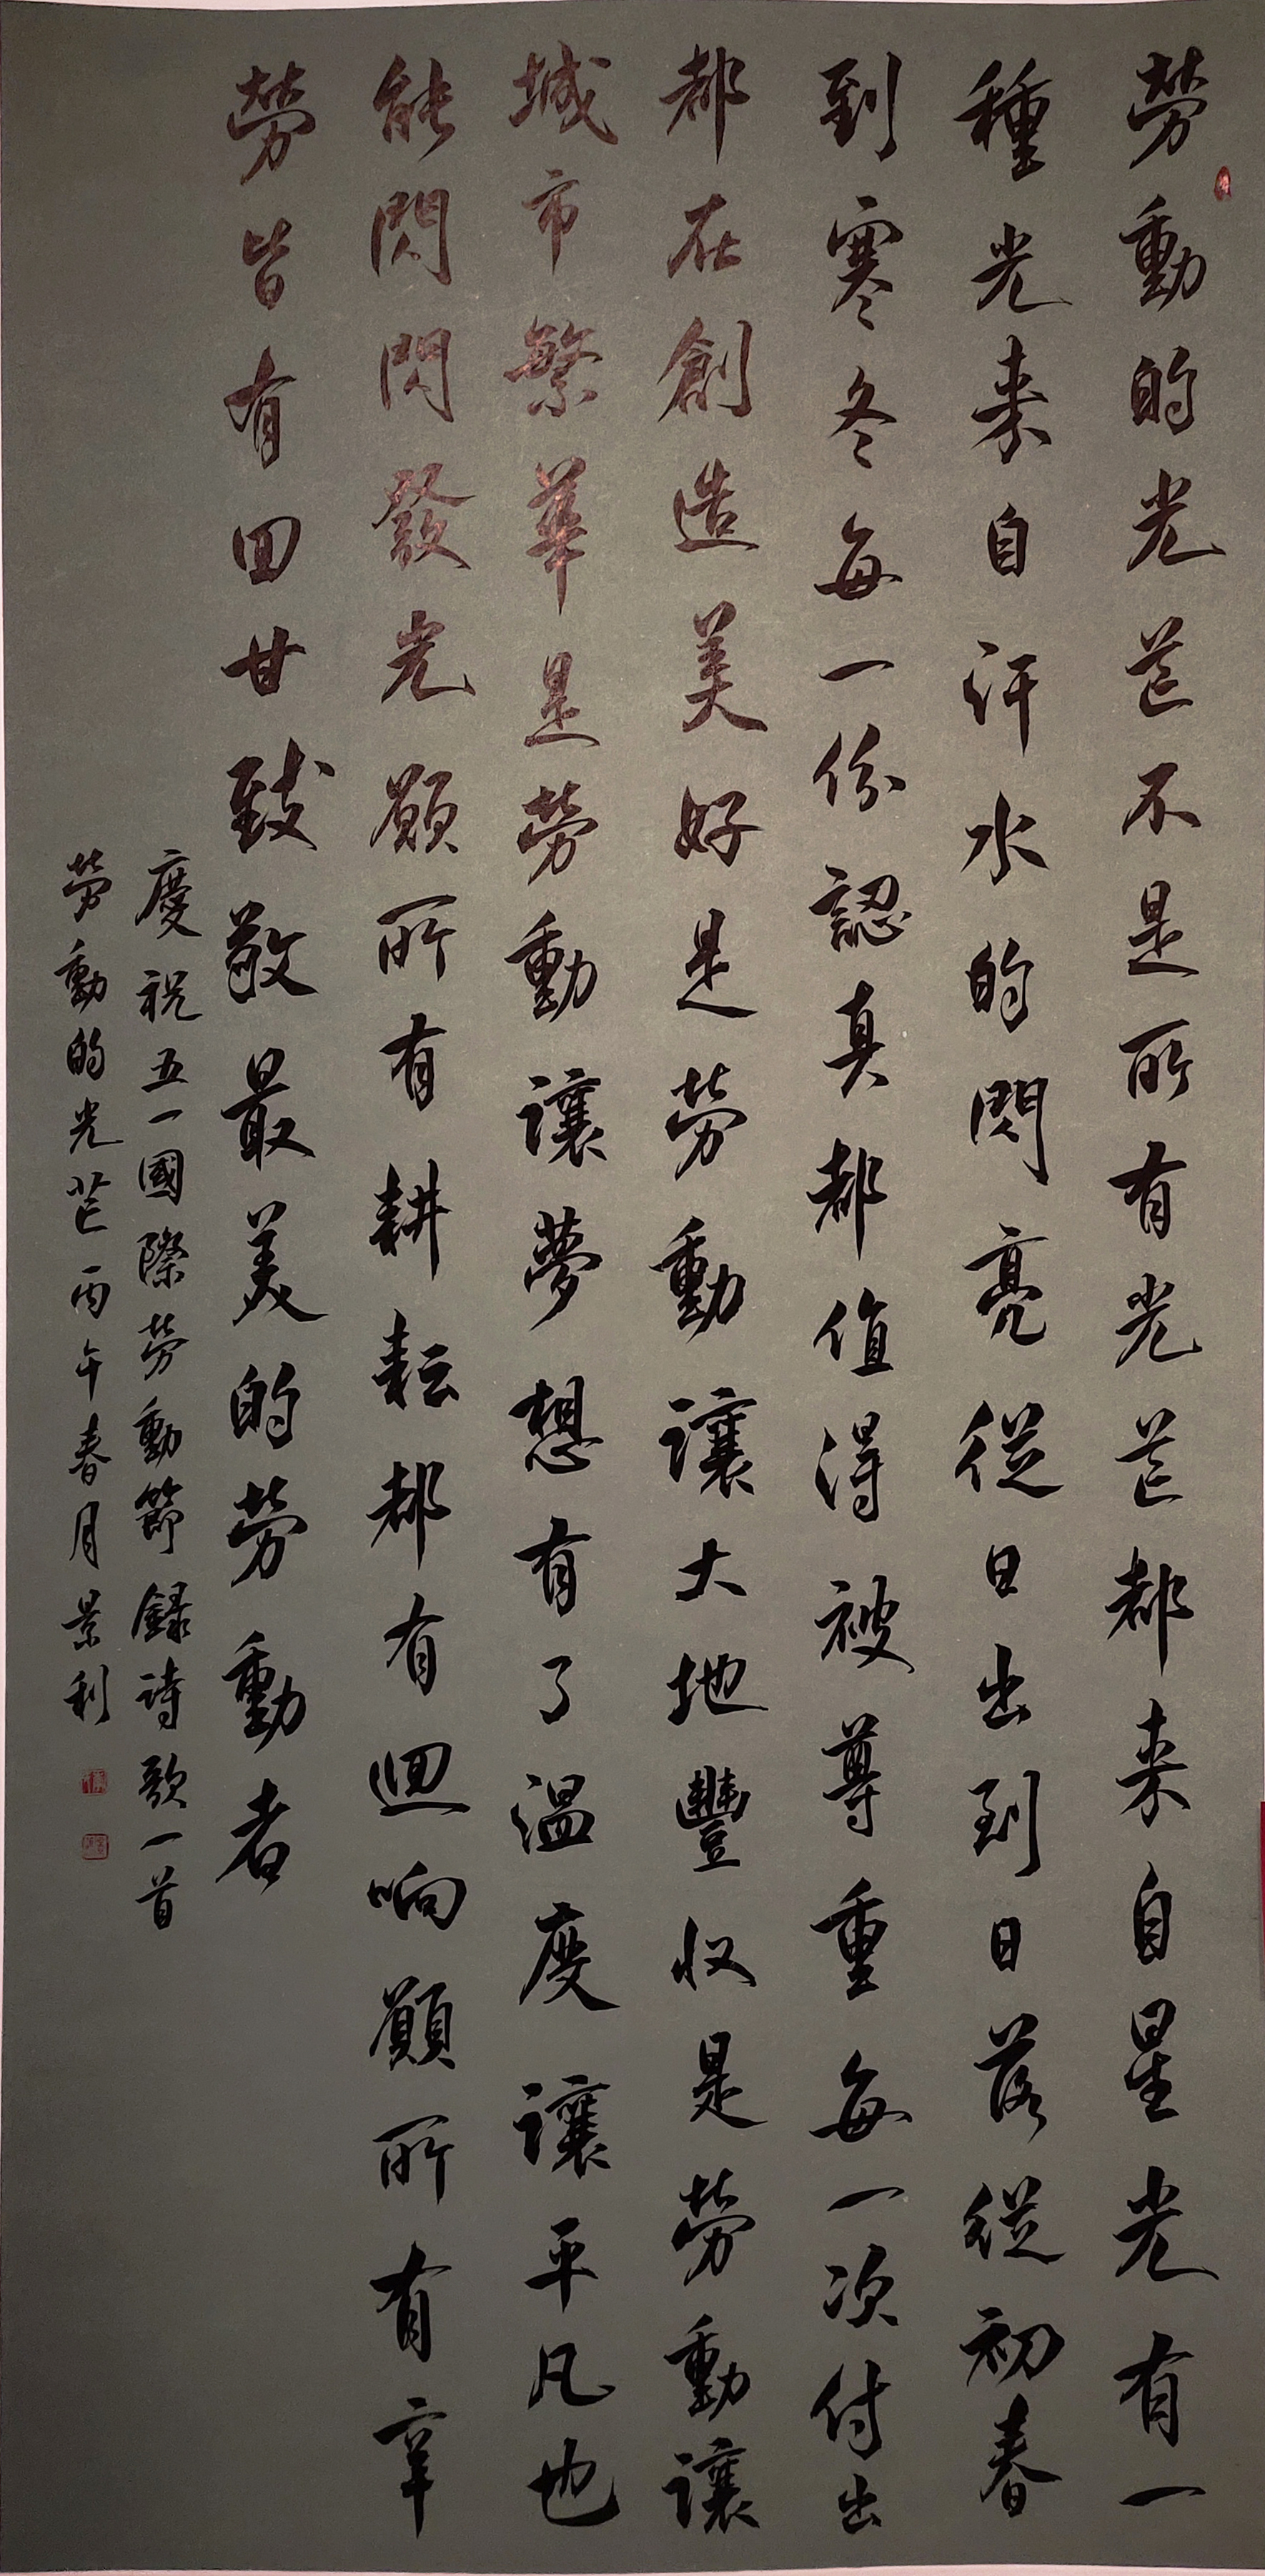 勞動的光芒不是所有光芒都来自星光有一
種光来自汗水的閃亮從日出到日落從初春
到寒冬每一份認真都值得被尊重每一次付出
都在創造美好是勞動讓大地豐收是勞動讓
城市繁華是勞動讓夢想有了温度讓平凡也
能閃閃發光願所有耕耘都有迴响願所有辛
勞皆有回甘致敬最美的勞動者
慶祝五一國際勞動節録詩歌一首
勞動的光芒丙午春月景利